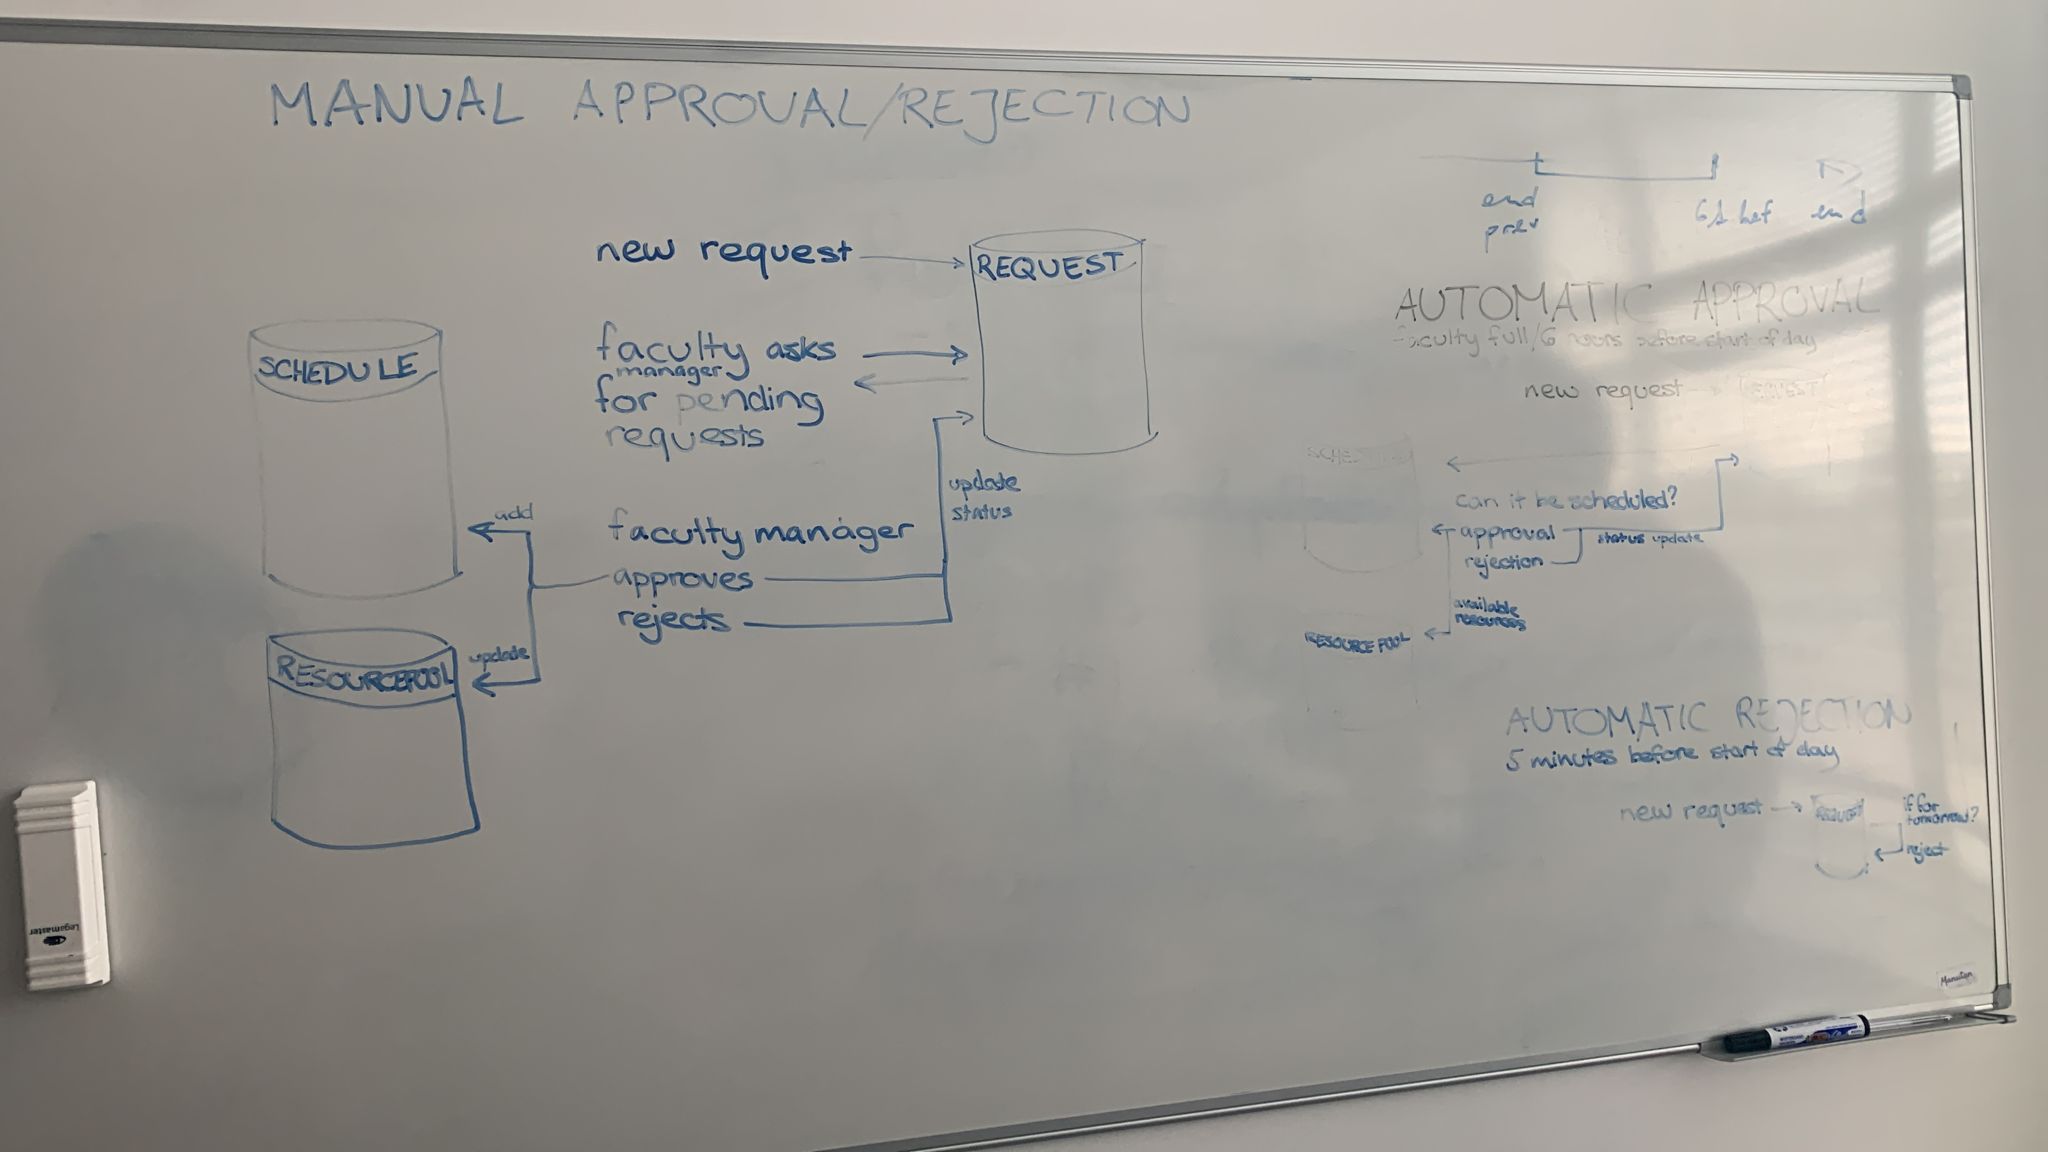 MANUAL APPROVAL/REJECTION
new request
REQUEST
faculty asks
manager
for pending
requests
SCHEDULE
update
status
add
faculty manager
approves
rejects
update
RESOURCEPOOL
end
prev
end
AUTOMATIC APPROVAL
faculty full/6 hours before start of day
new request
REQUEST
SCHEDULE
can it be scheduled?
approval
status update
rejection
available
resources
RESOURCE POOL
AUTOMATIC REJECTION
5 minutes before start of day
new request
REQUEST
if for
tomorrow?
reject
Legamaster
Manutan